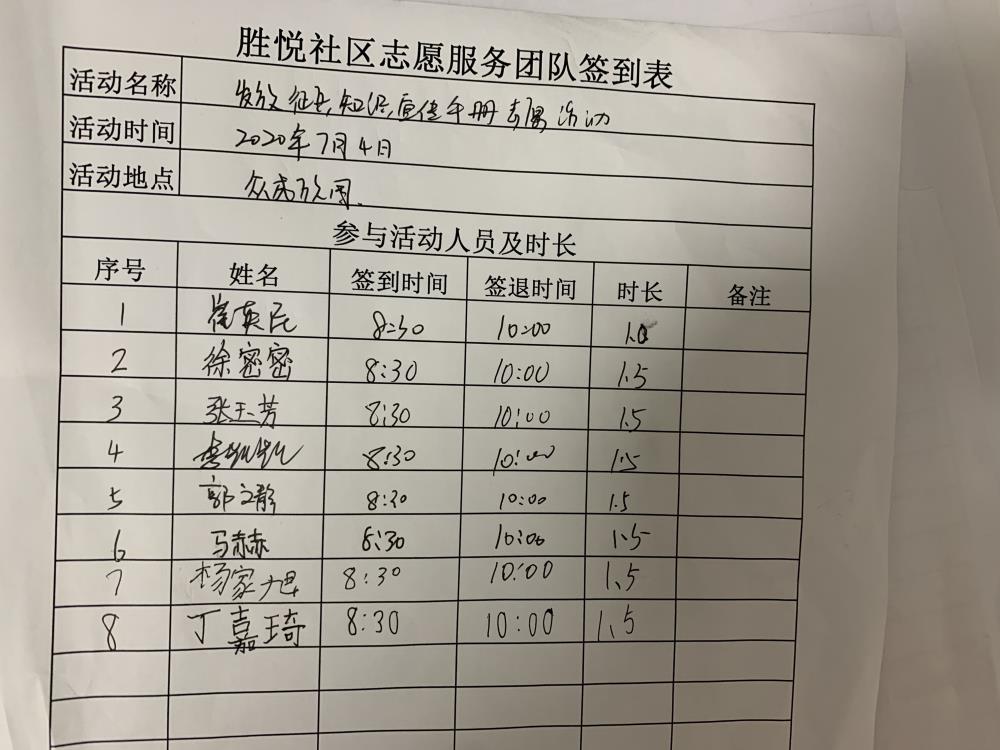 胜悦社区志愿服务团队签到表
活动名称 发放征兵知识宣传手册专属活动
活动时间 2020年7月4日
活动地点
参与活动人员及时长
序号 姓名 签到时间 签退时间 时长 备注
1 崔英民 8:30 10:00 1.0
2 徐密密 8:30 10:00 1.5
3 张玉芳 8:30 10:00 1.5
4 8:30 10:00 1.5
5 郭文静 8:30 10:00 1.5
6 马赫赫 8:30 10:00 1.5
7 杨家旭 8:30 10:00 1.5
8 丁嘉琦 8:30 10:00 1.5